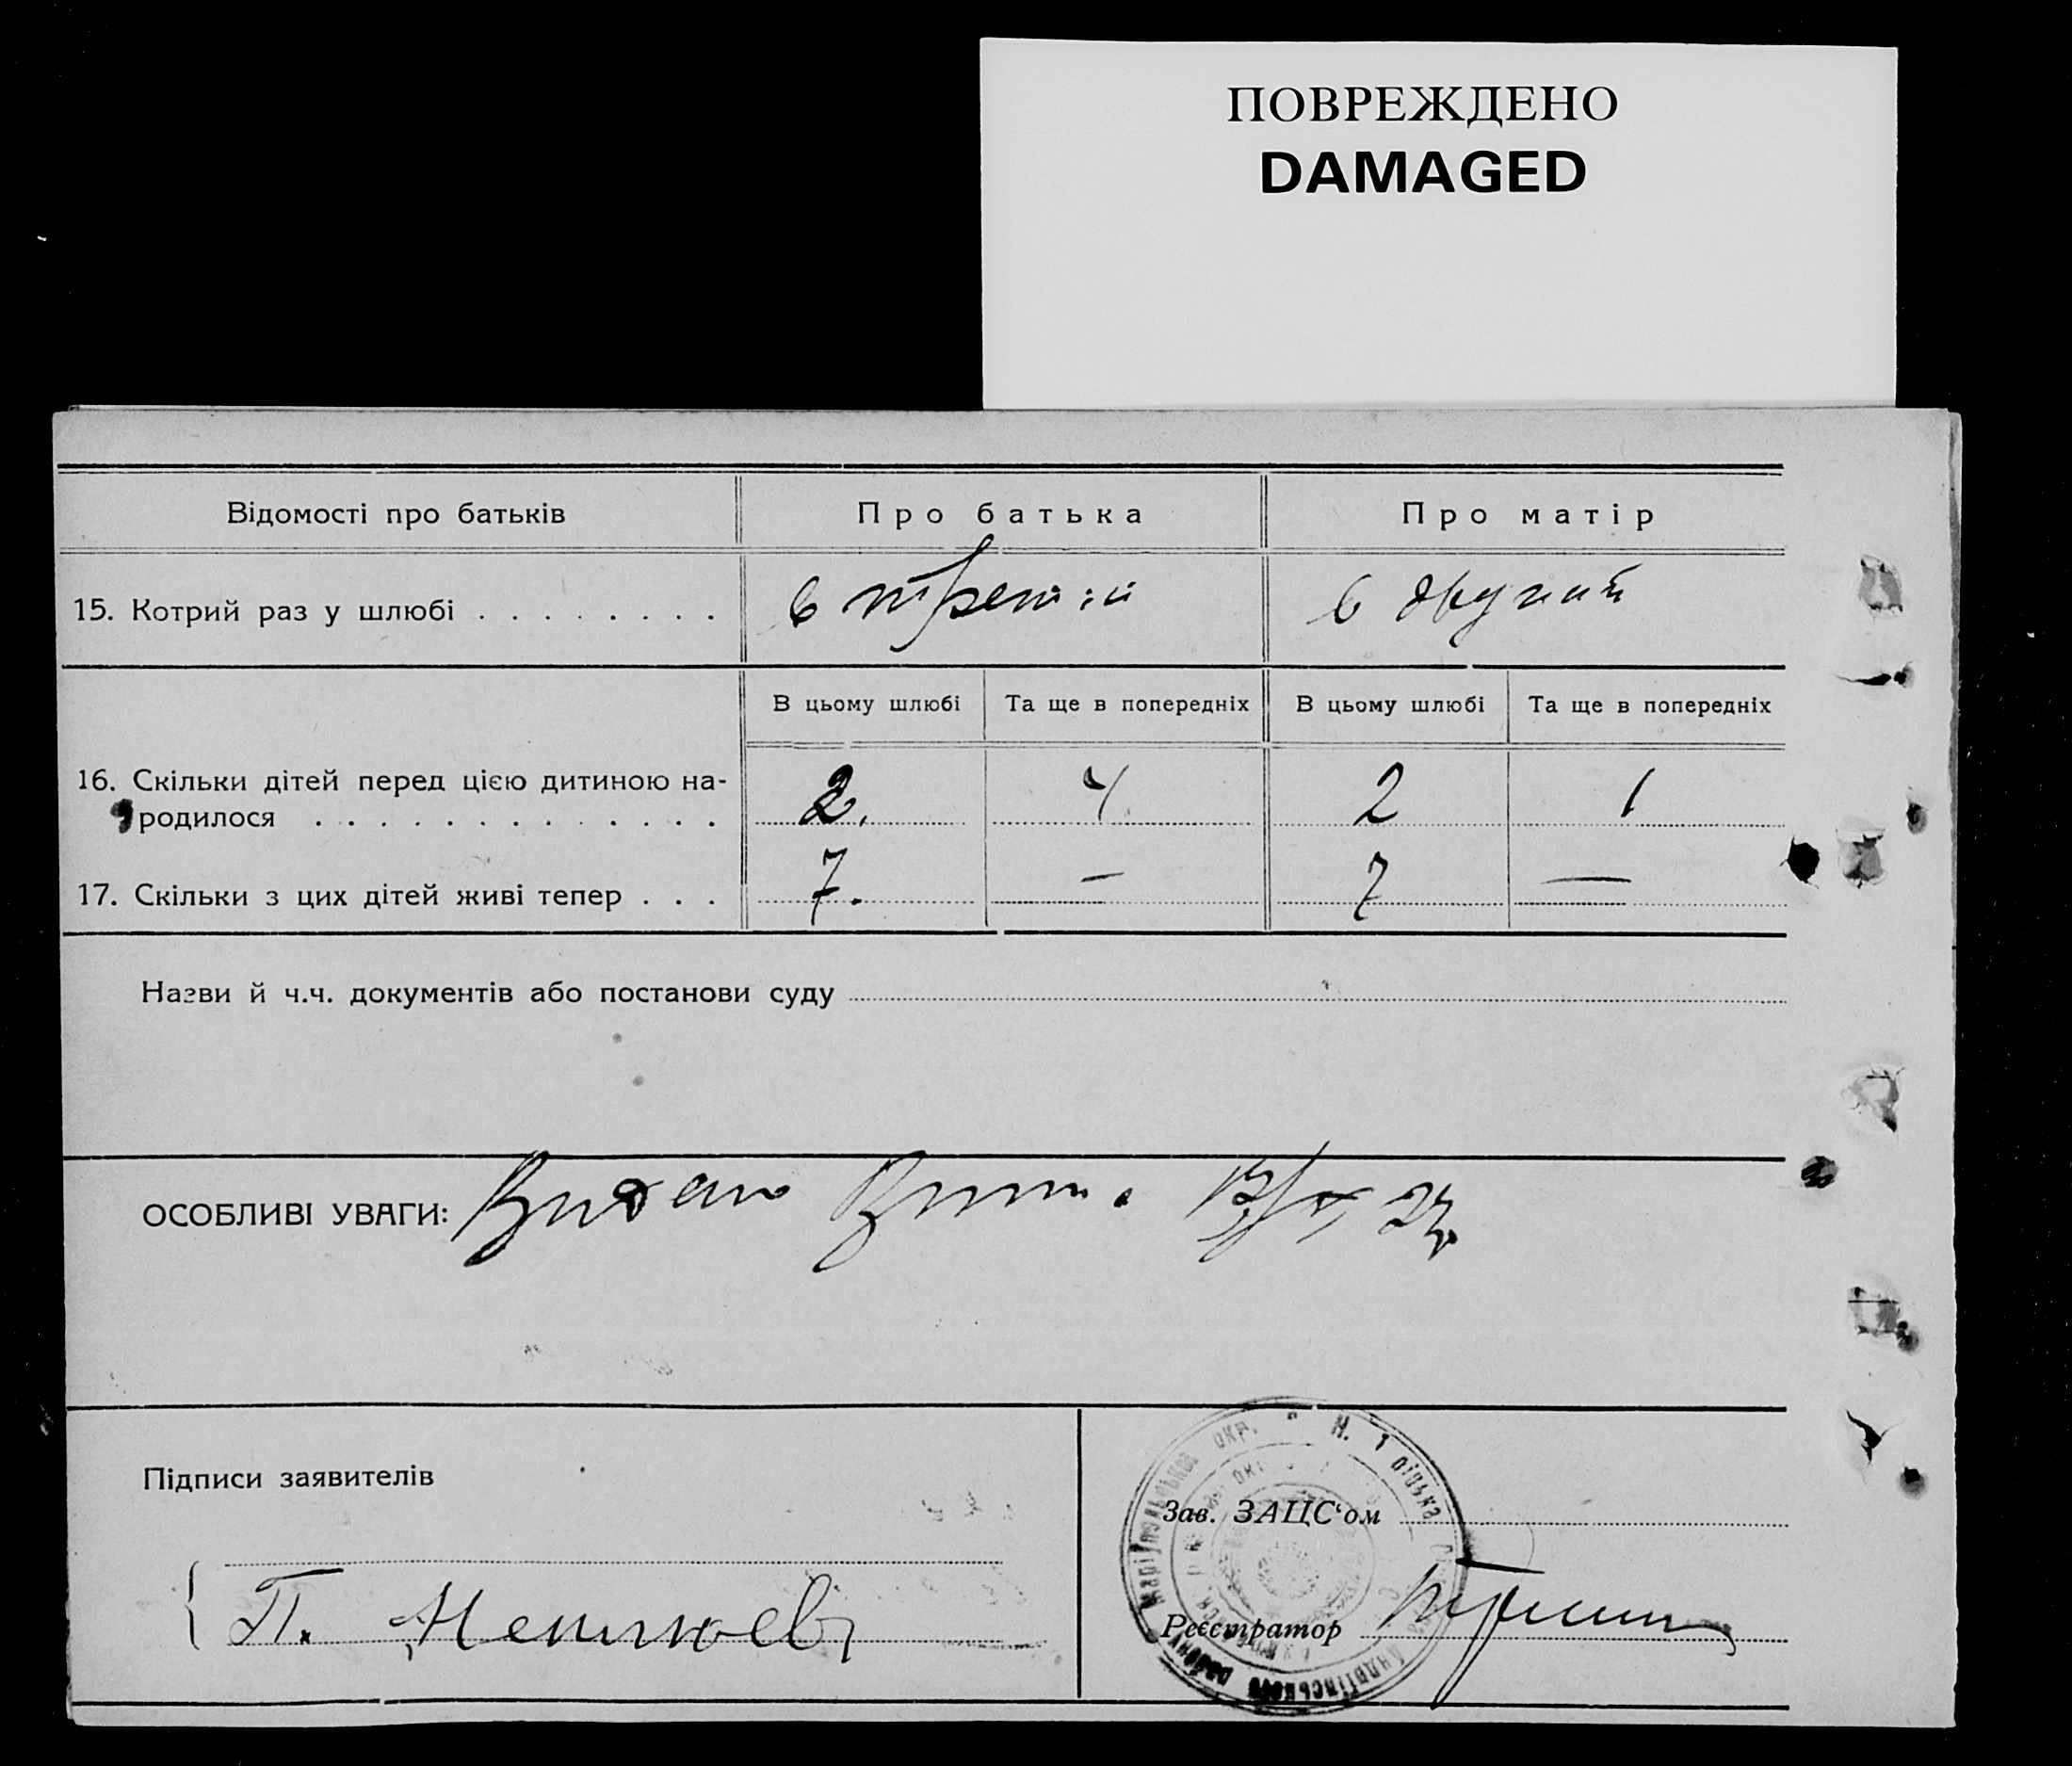 ПОВРЕЖДЕНО
DAMAGED
Відомості про батьків Про батька Про матір
15. Котрий раз у шлюбі . . . . . . . . в третій в другий
В цьому шлюбі Та ще в попередніх В цьому шлюбі Та ще в попередніх
16. Скільки дітей перед цією дитиною на-
родилося . . . . . . . . . . . . . 2. 4 2 1
17. Скільки з цих дітей живі тепер . . . 7. — 7 —
Назви й ч.ч. документів або постанови суду
ОСОБЛИВІ УВАГИ:
Підписи заявителів
Зав. ЗАЦС‘ом
П.
Реєстратор
Маріупольської окр. Н.
району